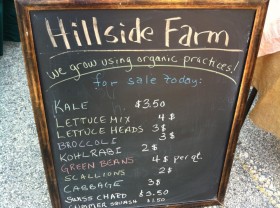 Hillside Farm
we grow using organic practices!
for sale today:
KALE $3.50
LETTUCE MIX 4$
LETTUCE HEADS 3$
BROCCOLI 3$
KOHLRABI 2$
GREEN BEANS 4$ per qt.
SCALLIONS 2$
CABBAGE 3$
SWISS CHARD $3.50
SUMMER SQUASH $1.50